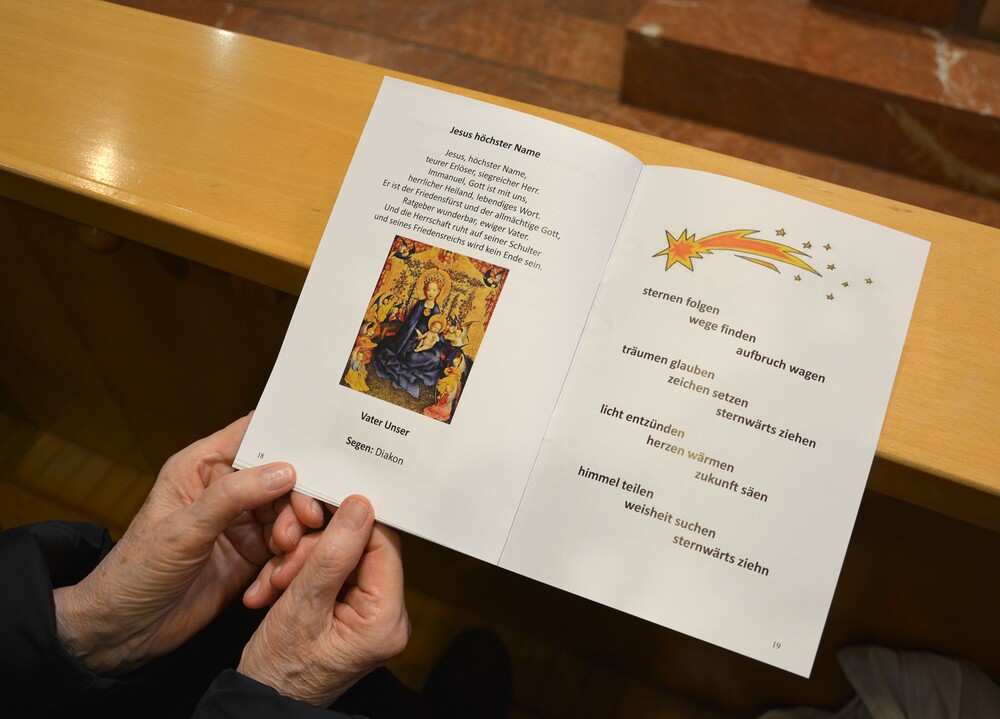 Jesus höchster Name
Jesus, höchster Name,
teurer Erlöser, siegreicher Herr.
Immanuel, Gott ist mit uns,
herrlicher Heiland, lebendiges Wort.
Er ist der Friedensfürst und der allmächtige Gott,
Ratgeber wunderbar, ewiger Vater.
Und die Herrschaft ruht auf seiner Schulter
und seines Friedensreichs wird kein Ende sein.
Vater Unser
Segen: Diakon
18
sternen folgen
wege finden
aufbruch wagen
träumen glauben
zeichen setzen
sternwärts ziehen
licht entzünden
herzen wärmen
zukunft säen
himmel teilen
weisheit suchen
sternwärts ziehn
19